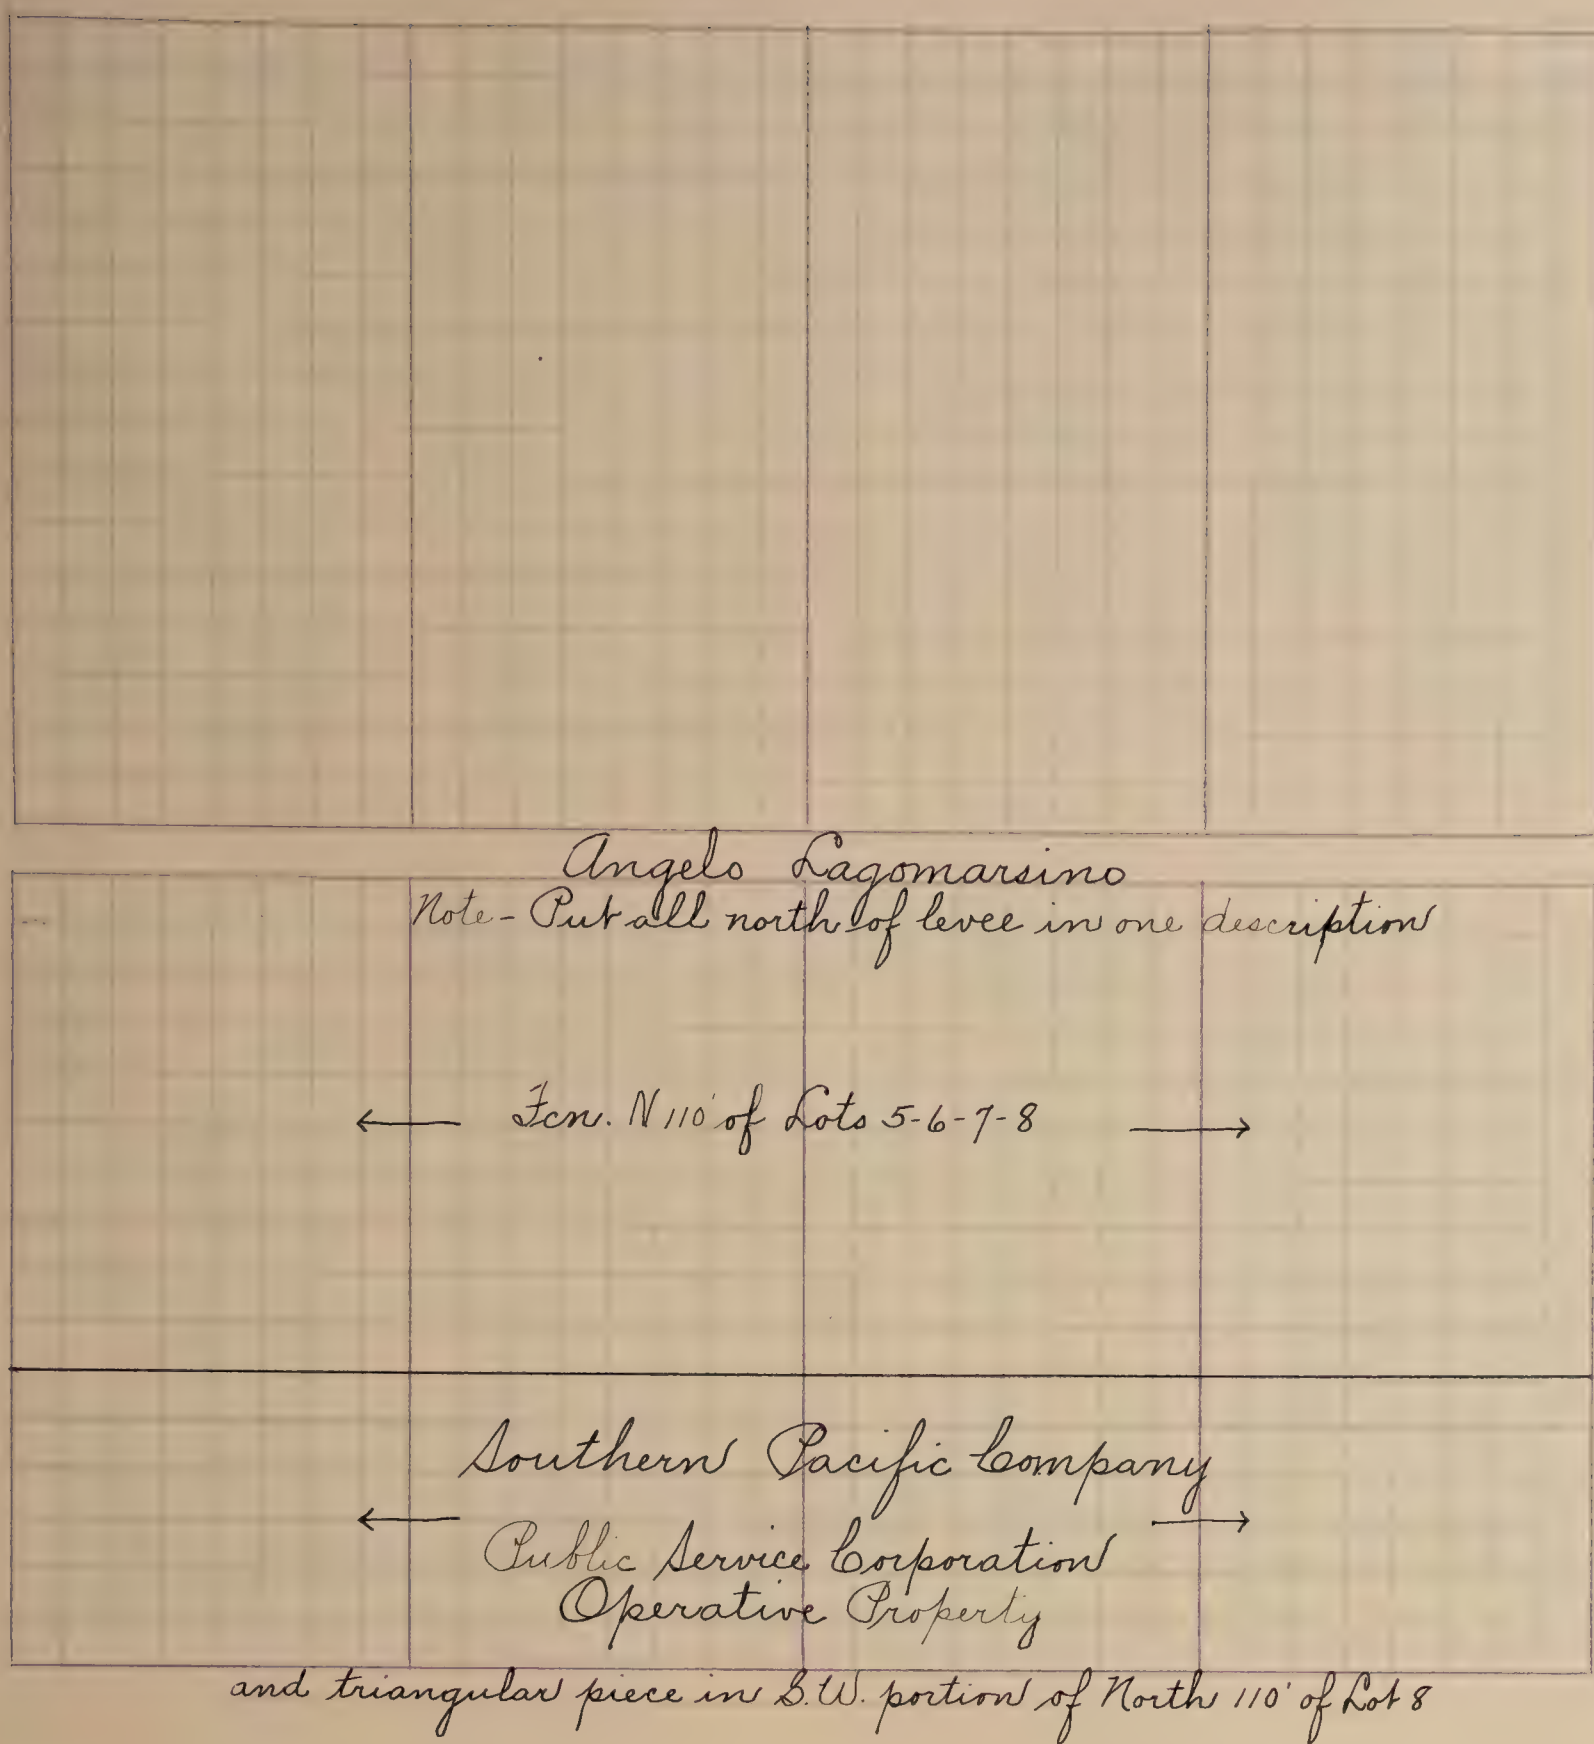 Angelo Lagomarsino
Note - Put all north of levee in one description
Fcn. N 110' of Lots 5-6-7-8
Southern Pacific Company
Public Service Corporation
Operative Property
and triangular piece in S.W. portion of North 110' of Lot 8